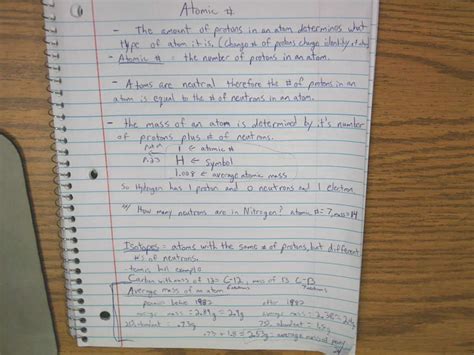 Atomic #
- The amount of protons in an atom determines what
type of atom it is. (Change # of protons change identity of atom)
- Atomic # = the number of protons in an atom.
- Atoms are neutral therefore the # of protons in an
atom is equal to the # of neutrons in an atom.
- the mass of an atom is determined by it's number
of protons plus # of neutrons.
1 ← atomic #
H ← symbol
1.008 ← average atomic mass
So Hydrogen has 1 proton and 0 neutrons and 1 electron
How many neutrons are in Nitrogen? atomic #=7, mass=14
Isotopes = atoms with the same # of protons, but different
#s of neutrons.
Carbon with mass of 12= C-12, mass of 13 C-13
Average mass of an atom
1982